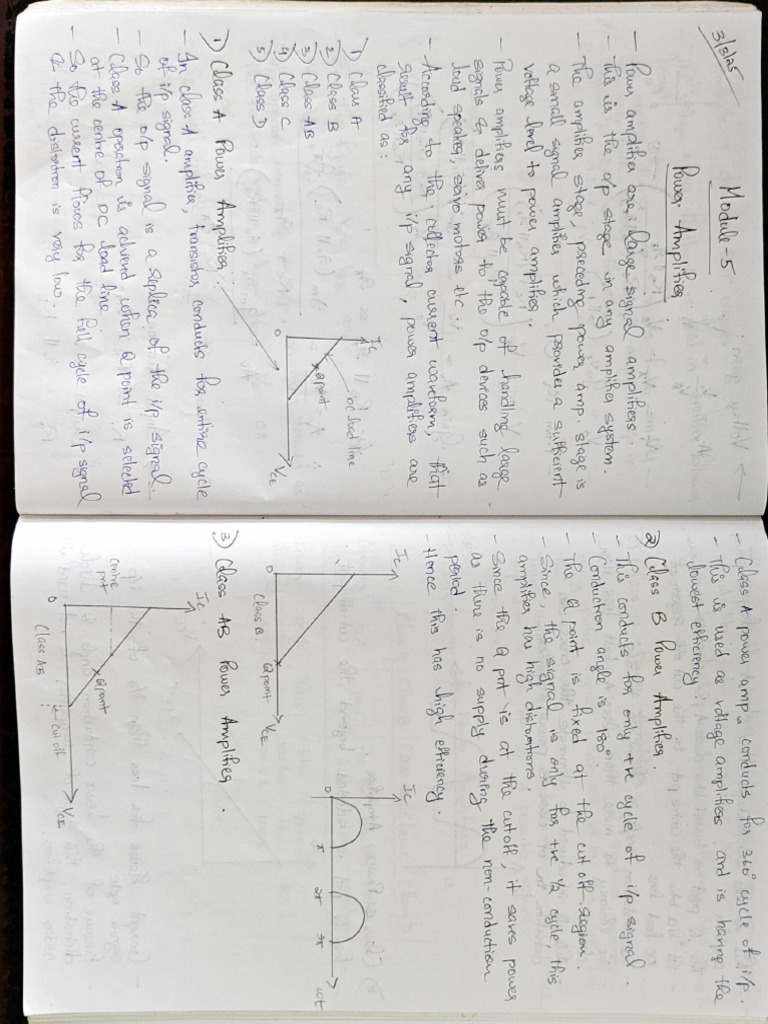 3/3/25
Module-5
Power Amplifiers
- Power amplifier are large signal amplifiers
- This is the o/p stage in any amplifier system.
- The amplifier stage, preceding power amp. stage is
a small signal amplifier which provides a sufficient
voltage level to power amplifier.
- Power amplifiers must be capable of handling large
signals & deliver power to the o/p devices such as
loud speaker, servo motors etc.
- According to the collector current waveform, that
result for any i/p signal, power amplifiers are
classified as:
1) Class A
2) Class B
3) Class AB
4) Class C
5) Class D
Ic
DC load line
Q point
0
VCE
1) Class A Power Amplifier.
- In class A amplifier, transistor conducts for entire cycle
of i/p signal.
- So the o/p signal is a replica of the i/p signal.
- Class A operation is achieved when Q point is selected
at the centre of DC load line.
- So the current flows for the full cycle of i/p signal
& the distortion is very low.
- Class A power amp. conducts for 360° cycle of i/p.
- This is used as voltage amplifiers and is having the
lowest efficiency.
2) Class B Power Amplifier.
- This conducts for only +ve cycle of i/p signal.
- Conduction angle is 180°
- The Q point is fixed at the cut off region.
- Since, the signal is only for +ve 1/2 cycle, this
amplifier has high distortions.
- Since the Q pnt is at the cutoff, it saves power
as there is no supply during the non-conduction
period.
- Hence this has high efficiency.
Ic
0
Q point
VCE
Class B.
Ic
0
π
2π
3π
ωt
3) Class AB Power Amplifier.
Ic
centre
pnt
Q point
cut off
0
VCE
Class AB